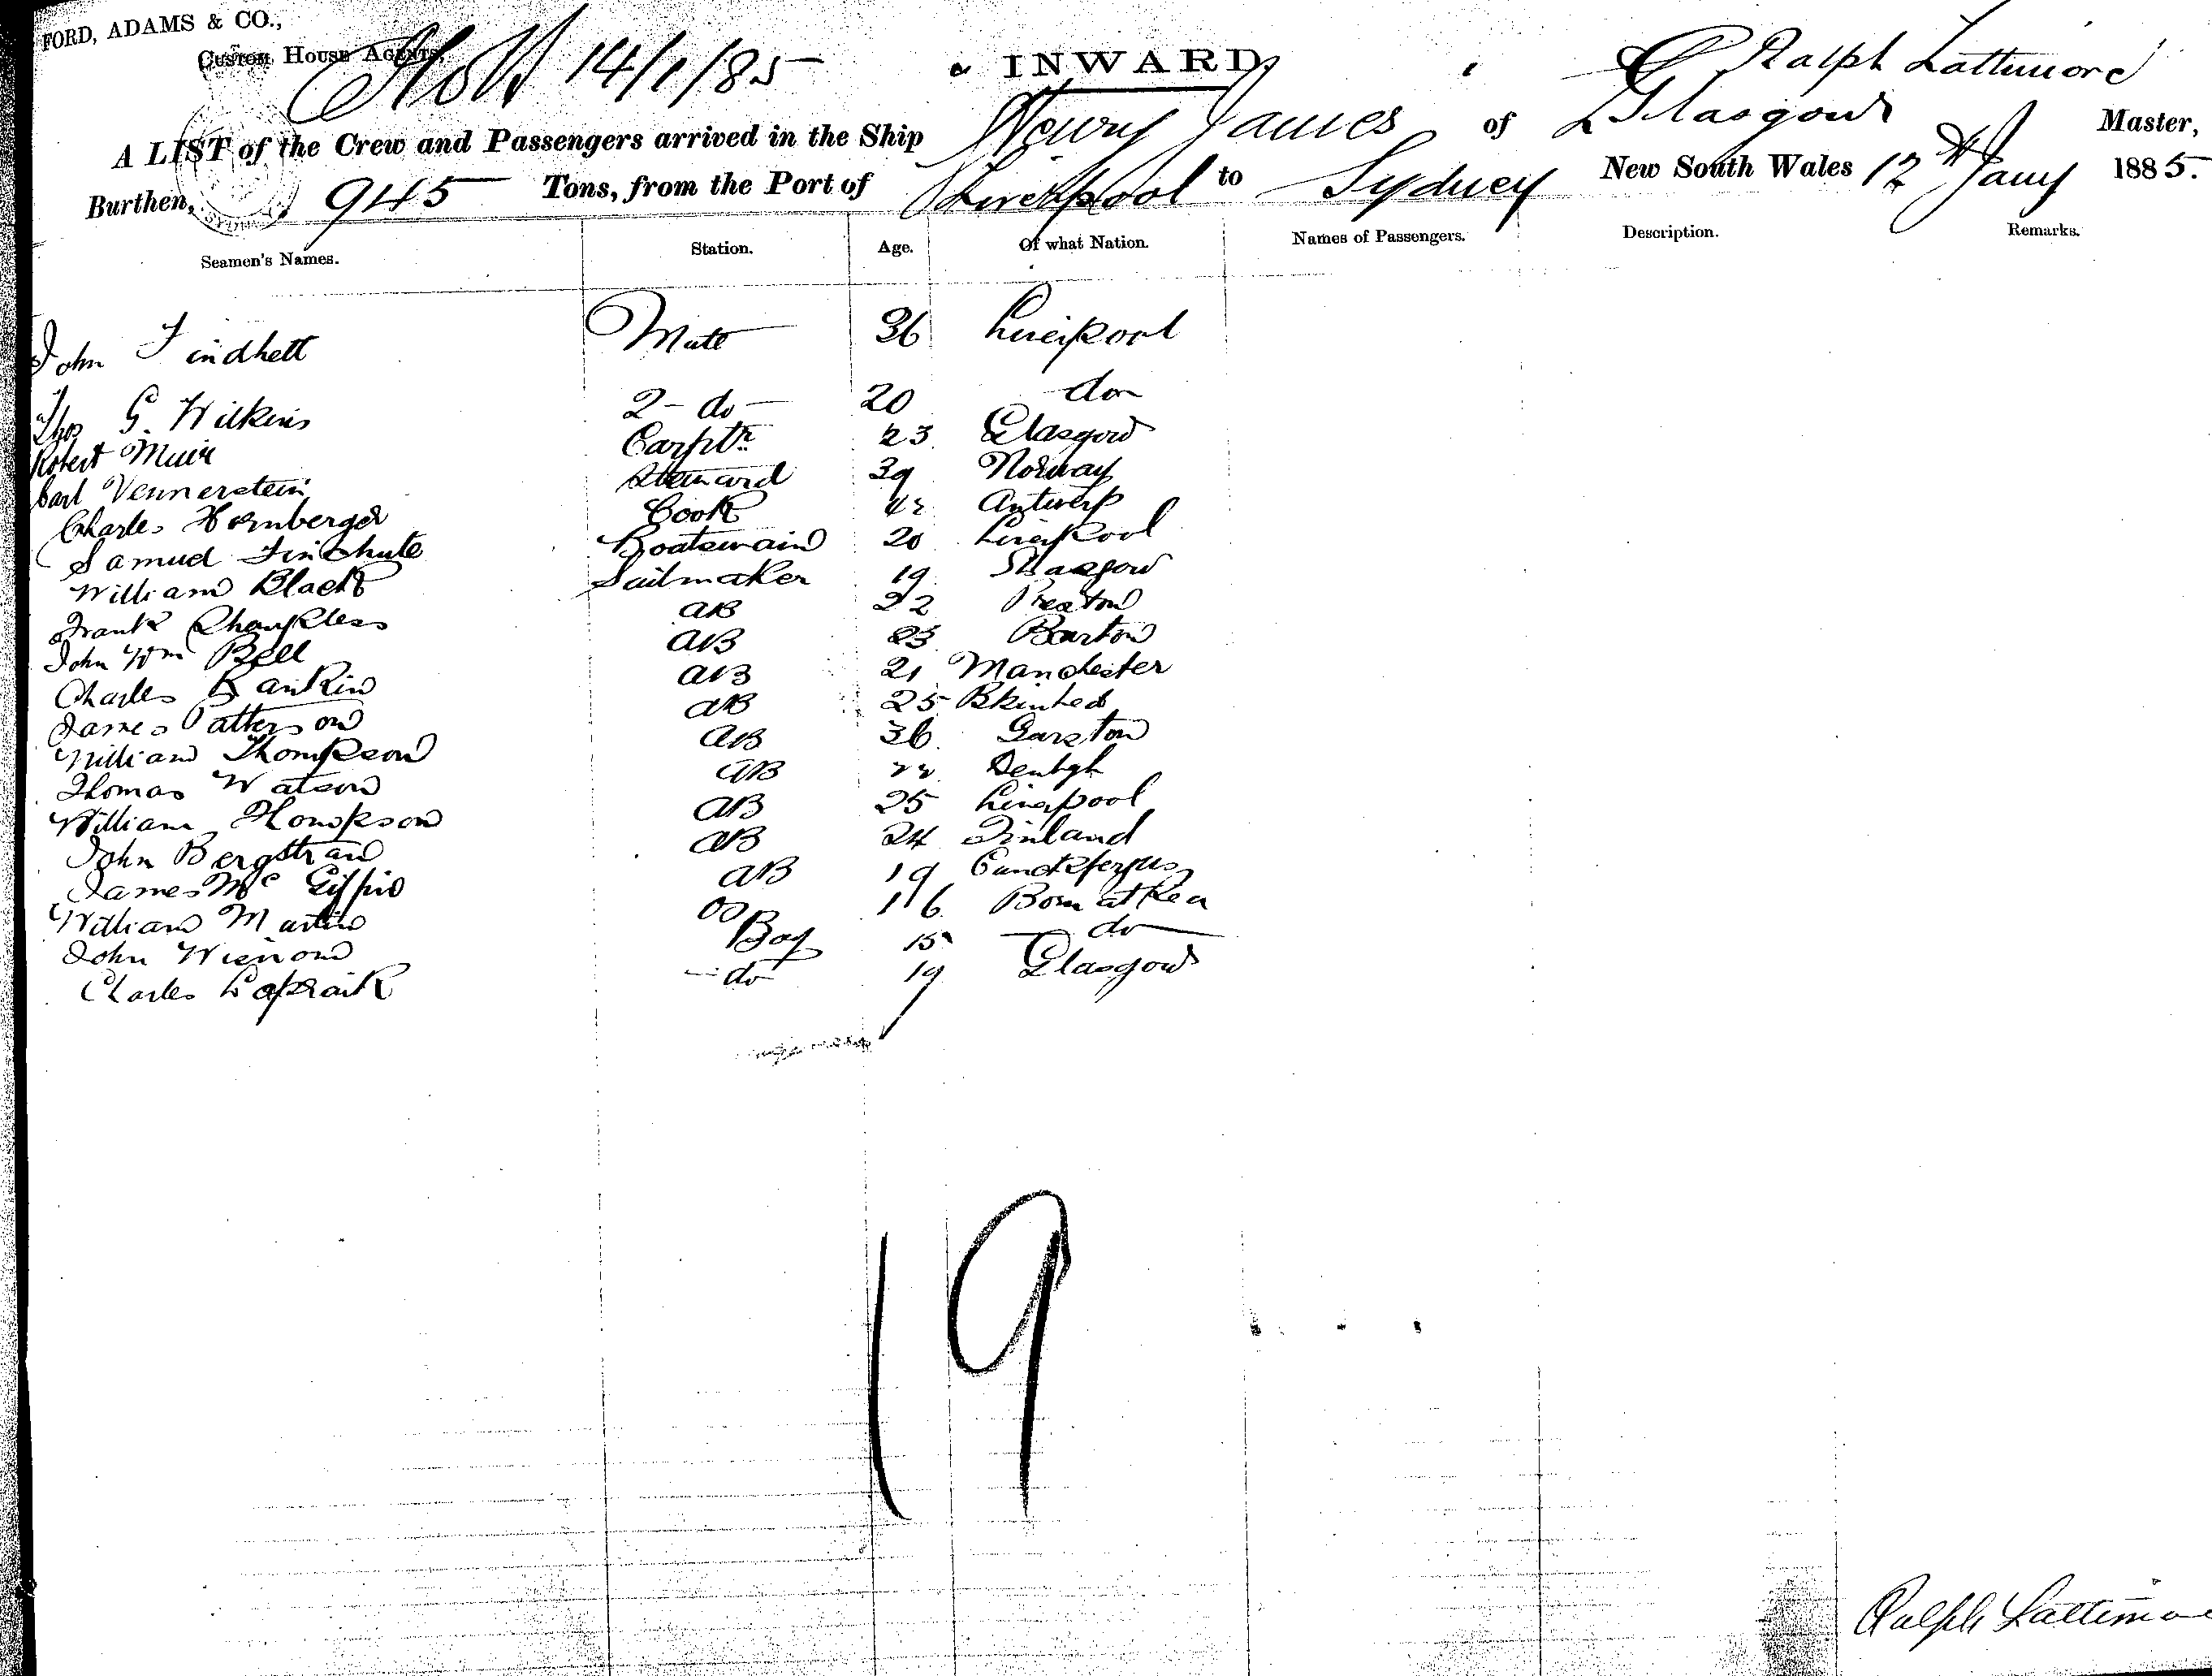 FORD, ADAMS & CO.,
Custom House Agents,
14/1/85
INWARD
Ralph Lattimore
A LIST of the Crew and Passengers arrived in the Ship Henry James of Glasgow Master,
Burthen, 945 Tons, from the Port of Liverpool to Sydney New South Wales 12th Jany 1885.
Seamen's Names. Station. Age. Of what Nation. Names of Passengers. Description. Remarks.
John Mate 36 Liverpool
Thos G. Wilkins 2 - do - 20 do
Robert Muir Carptr 23 Glasgow
Carl Vennerstein Steward 39 Norway
Charles Hornberger Cook Antwerp
Samuel Boatswain 20 Liverpool
William Black Sailmaker 19 Glasgow
Frank AB 22 Preston
John Wm Bell AB 23 Barton
Charles Rankin AB 21 Manchester
James Patterson AB 25 Bkinhed
William Thompson AB 36 Garston
Thomas Watson AB Denbgh
William Thompson AB 25 Liverpool
John Bergstrand AB 24 Finland
James Mc AB 19
William Martin OS 16 Born at Sea
John Boy 15 do
Charles do 19 Glasgow
19
Ralph Lattimore